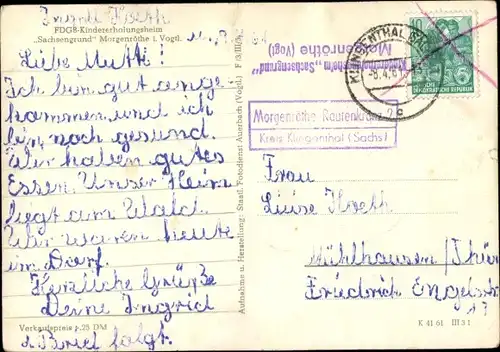 Ingrid
FDGB-Kindererholungsheim
"Sachsengrund" Morgenröthe i. Vogtl.
Liebe Mutti!
Ich bin gut ange-
kommen und ich
bin noch gesund.
Wir haben gutes
Essen. Unser Heim
liegt am Wald.
Wir waren heute
im Dorf.
Herzliche Grüße
Deine Ingrid
Brief folgt.
Verkaufspreis -.25 DM
Aufnahme u. Herstellung: Staatl. Fotodienst Auerbach (Vogtl.) F 3/III/
Kindererholungsheim „Sachsengrund"
Morgenröthe (Vogtl)
KLINGENTHAL (SACHS)
-8.4.61
DEUTSCHE DEMOKRATISCHE REPUBLIK
Morgenröthe Rautenkranz
Kreis Klingenthal (Sachs)
Frau
Luise
Mühlhausen / Thür
Friedrich Engels
K 41 61 III 3 1